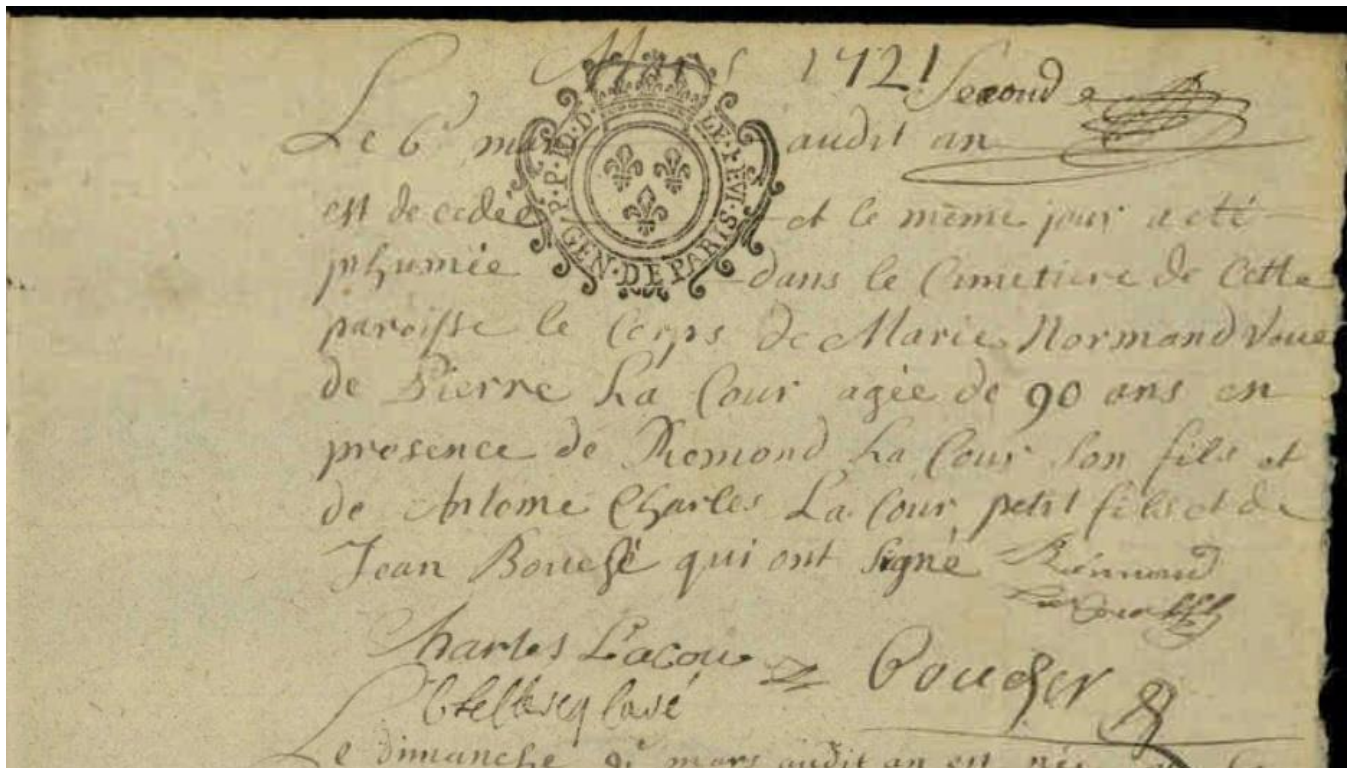 Mars 1721
Second
Le 6e mars audit an
est decedée et le même jour a eté
jnhumée dans le Cimetiere de Cette
paroisse le Corps de Marie Normand Veue
de Pierre La Cour agée de 90 ans en
presence de Remond La Cour Son fils et
de Antoine Charles La Cour petit fils et de
Jean Bouché qui ont Signé Rémond
Charles Lacour Boucher
curé
Le dimanche mars audit an est née
GEN·DE PARIS